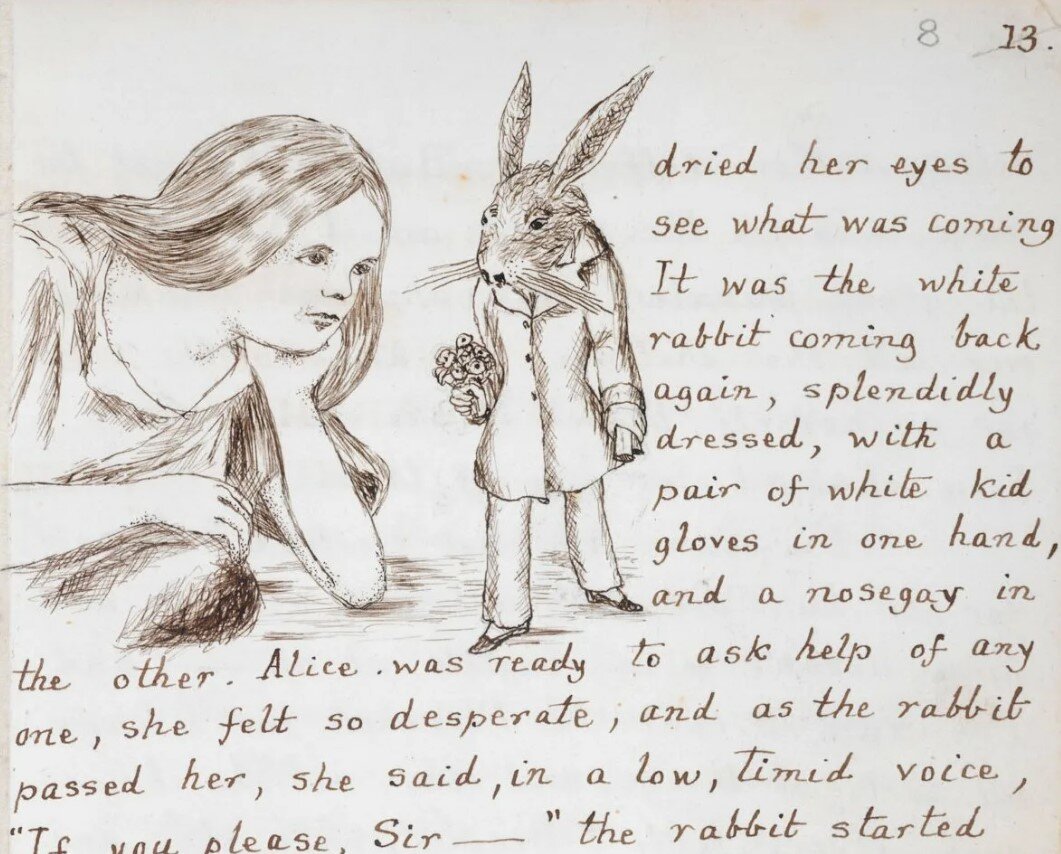 8 13.
dried her eyes to
see what was coming
It was the white
rabbit coming back
again, splendidly
dressed, with a
pair of white kid
gloves in one hand,
and a nosegay in
the other. Alice was ready to ask help of any
one, she felt so desperate, and as the rabbit
passed her, she said, in a low, timid voice,
"If you please, Sir — " the rabbit started